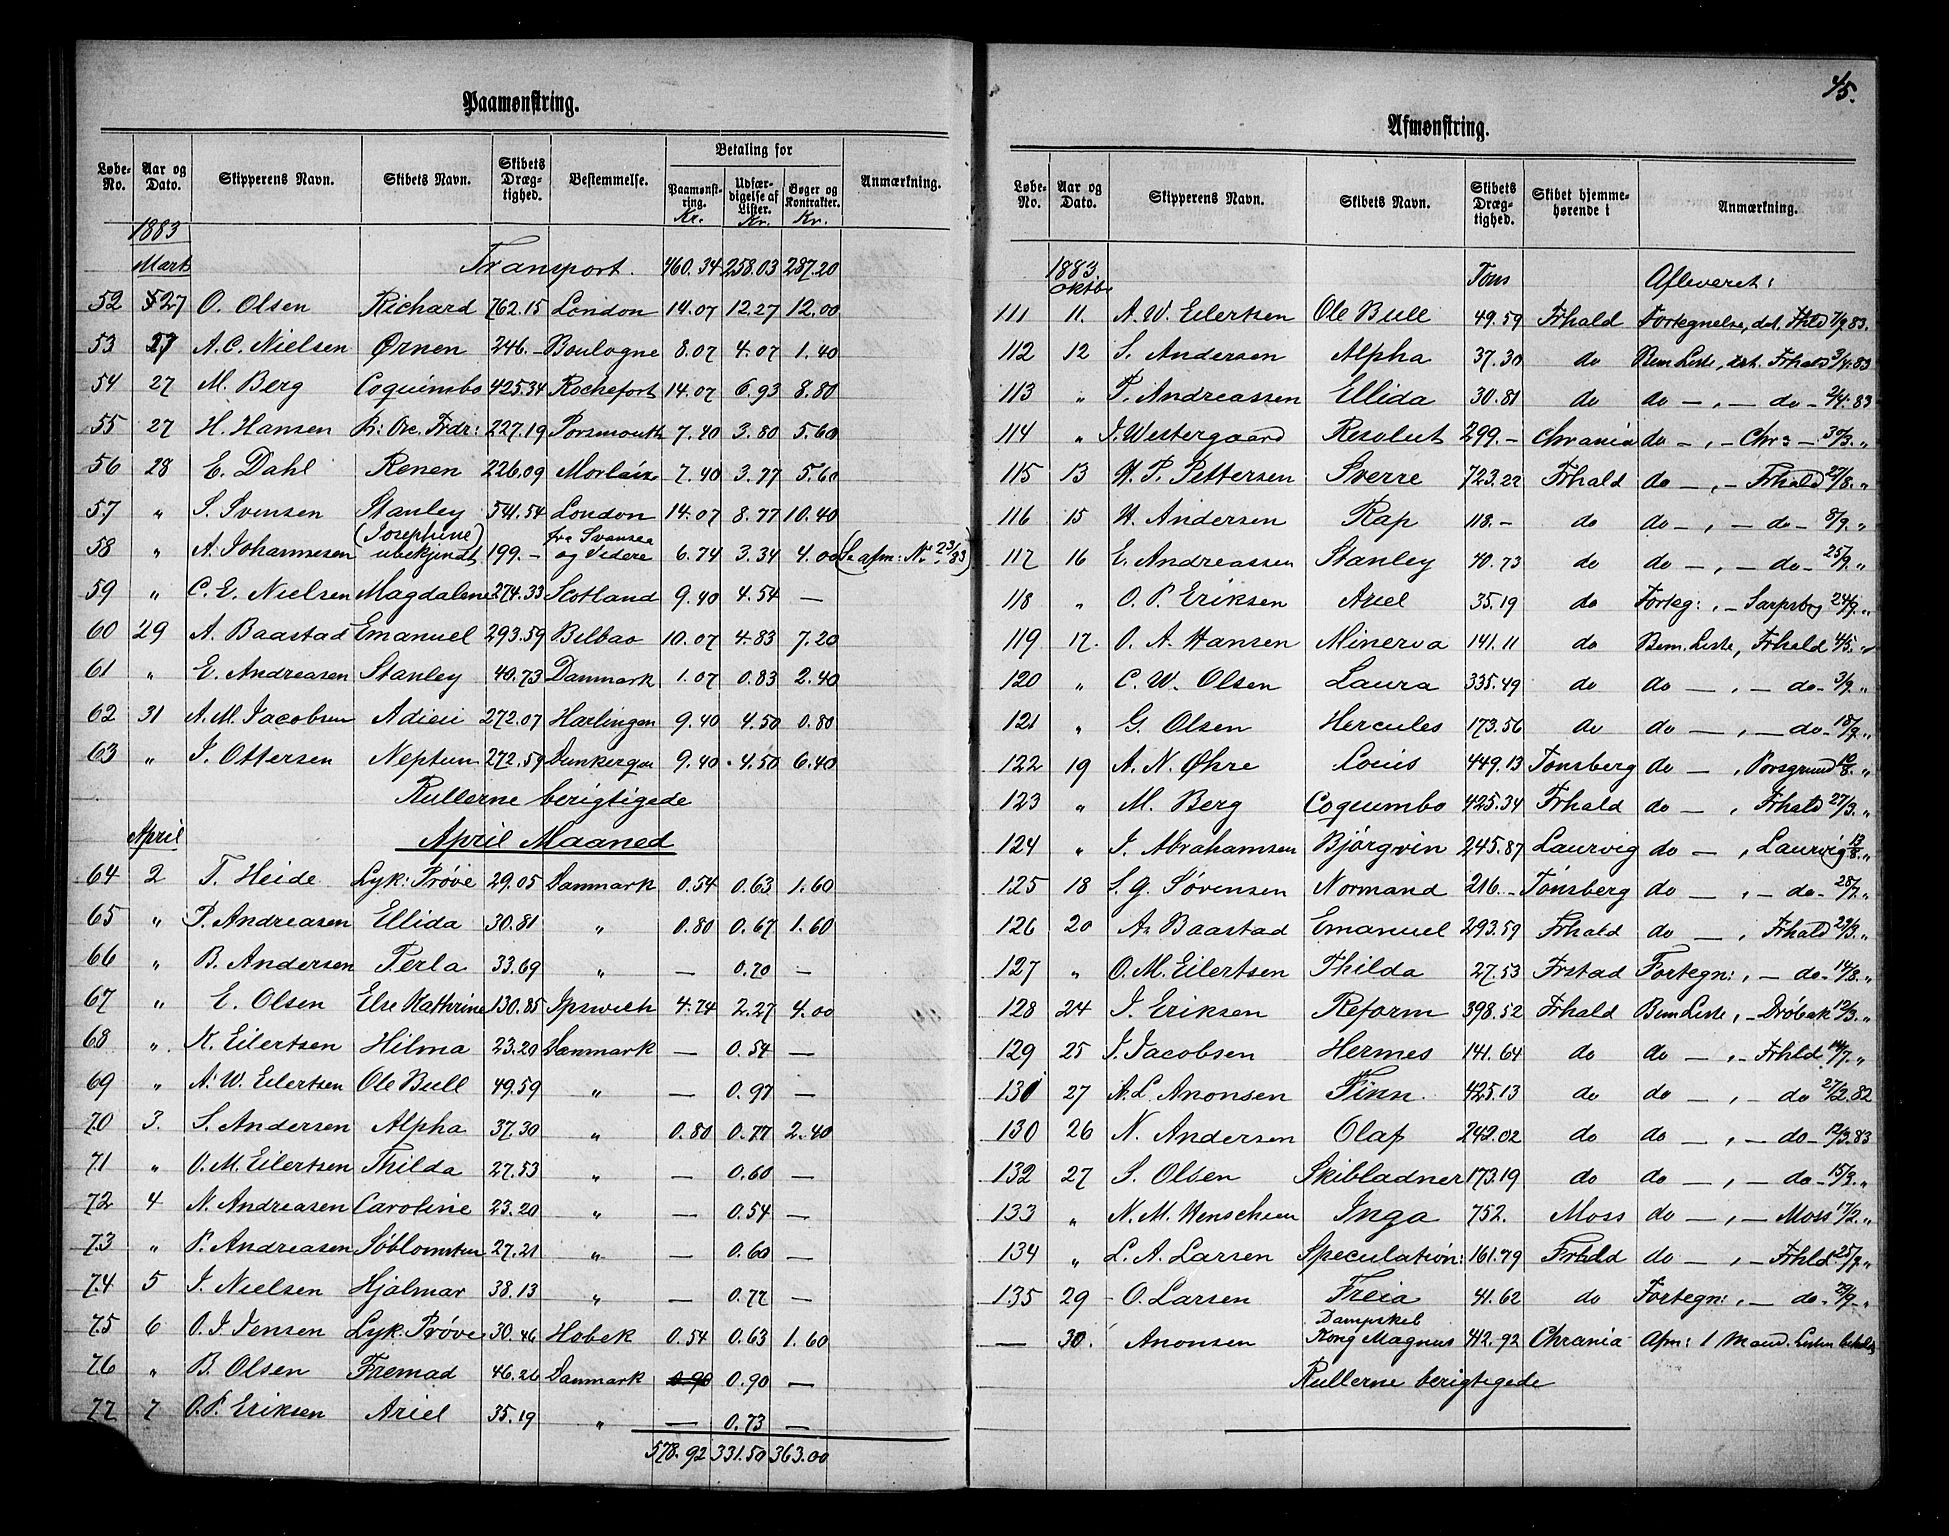 Paamønstring.
Løbe-No. | Aar og Dato. | Skipperens Navn. | Skibets Navn. | Skibets Dræg-tighed. | Bestemmelse. | Betaling for | Anmærkning.
Paamønst-ring. | Udfær-digelse af Lister. | Bøger og Kontrakter.
Kr. | Kr. | Kr.
1883
Marts | Transport. | 460.34 | 258.03 | 287.20
52 | 27 | O. Olsen | Richard | 762.15 | London | 14.07 | 12.27 | 12.00
53 | 27 | A. C. Nielsen | Ørnen | 246.- | Boulogne | 8.07 | 4.07 | 1.40
54 | 27 | M. Berg | Coquimbo | 425.34 | Rochefort | 14.07 | 6.93 | 8.80
55 | 27 | H. Hansen | Pr: Frdr: | 227.19 | Porsmouth | 7.40 | 3.80 | 5.60
56 | 28 | E. Dahl | Renen | 226.09 | Morlaix | 7.40 | 3.77 | 5.60
57 | " | S. Svensen | Stanley | 541.54 | London | 14.07 | 8.77 | 10.40
58 | " | A. Johannesen | (Josephine) ubekjendt | 199.- | fra Svansea og videre | 6.74 | 3.34 | 4.00 | (Se afm: Nr. 23/83)
59 | " | C. E. Nielsen | Magdalene | 274.33 | Scotland | 9.40 | 4.54 | —
60 | 29 | A. Baastad | Emanuel | 293.59 | Bilbao | 10.07 | 4.83 | 7.20
61 | " | E. Andreasen | Stanley | 40.73 | Danmark | 1.07 | 0.83 | 2.40
62 | 31 | A. M. Jacobsen | Adieu | 272.07 | Harlingen | 9.40 | 4.50 | 0.80
63 | " | J. Ottersen | Neptun | 272.59 | Dunkerque | 9.40 | 4.50 | 6.40
Rullerne berigtigede
April | April Maaned
64 | 2 | T. Heide | Lyk: Prøve | 29.05 | Danmark | 0.54 | 0.63 | 1.60
65 | " | P. Andreasen | Ellida | 30.81 | " | 0.80 | 0.67 | 1.60
66 | " | B. Andersen | Perla | 33.69 | " | — | 0.70 | —
67 | " | E. Olsen | Else Kathrine | 130.85 | Ipswich | 4.74 | 2.27 | 4.00
68 | " | K. Eilertsen | Hilma | 23.20 | Danmark | — | 0.54 | —
69 | " | A. W. Eilertsen | Ole Bull | 49.59 | " | — | 0.97 | —
70 | 3. | S. Andersen | Alpha | 37.30 | " | 0.80 | 0.77 | 2.40
71 | " | O. M. Eilertsen | Thilda | 27.53 | " | — | 0.60 | —
72 | 4 | N. Andreasen | Caroline | 23.20 | " | — | 0.54 | —
73 | " | P. Andreasen | Søblomsten | 27.21 | " | — | 0.60 | —
74 | 5 | J. Nielsen | Hjalmar | 38.13 | " | — | 0.77 | —
75 | 6 | O. J. Jensen | Lyk: Prøve | 30.46 | Hobek | 0.54 | 0.63 | 1.60
76 | " | B. Olsen | Fremad | 46.26 | Danmark | 0.90 | 0.90 | —
77 | 7 | O. P. Eriksen | Ariel | 35.19 | " | — | 0.73 | —
578.92 | 331.50 | 363.00
45.
Afmønstring.
Løbe-No. | Aar og Dato. | Skipperens Navn. | Skibets Navn. | Skibets Dræg-tighed. | Skibet hjemme-hørende i | Anmærkning.
1883. | Tons | Afleveret:
Oktbr
111 | 11. | A. W. Eilertsen | Ole Bull | 49.59 | Frhald | Fortegnelse, dat. Fhld 7/9 83.
112 | 12 | S. Andersen | Alpha | 37.30 | do | Bem. Liste, dat. Frhald 3/4 83
113 | " | P. Andreassen | Ellida | 30.81 | do | do — , — do - 2/4 83
114 | " | J. Westergaard | Resolut | 299.- | Chrania | do — , - Chr: - 30/3 "
115 | 13 | H. P. Pettersen | Sverre | 723.22 | Frhald | do — , - Frhald 27/8 "
116 | 15 | H. Andersen | Rap | 118.- | do | do — , — do - 8/9 "
117 | 16 | E. Andreassen | Stanley | 40.73 | do | do — , — do - 25/9 "
118 | " | O. P. Eriksen | Ariel | 35.19 | do | Forteg: , - Sarpsborg 24/9 "
119 | 17. | O. A. Hansen | Minerva | 141.11 | do | Bem. Liste, Frhald 4/5 "
120 | " | C. W. Olsen | Laura | 335.49 | do | do — , — do - 3/9 "
121 | " | G. Olsen | Hercules | 173.56 | do | do — , — do - 18/9 "
122 | 19 | A. N. Øhre | Louis | 449.13 | Tønsberg | do — , Porsgrund 10/8 "
123 | " | M. Berg | Coquimbo | 425.34 | Frhald | do — , Frhald 27/3 "
124 | " | J. Abrahamsen | Bjørgvin | 245.87 | Laurvig | do — , Laurvig 13/8 "
125 | 18 | S. G. Sørensen | Normand | 216.- | Tønsberg | do — , — do - 28/7 "
126 | 20 | A. Baastad | Emanuel | 293.59 | Frhald | do — , Frhald 29/3 "
127 | " | O. M. Eilertsen | Thilda | 27.53 | Frstad | Fortegn: , — do - 14/8 "
128 | 24 | J. Eriksen | Reform | 398.52 | Frhald | Bem Liste , - Drøbak 12/3 "
129 | 25 | J. Jacobsen | Hermes | 141.64 | do | do — , - Frhld 14/7 "
131 | 27 | A. L. Anonsen | Finn | 425.13 | do | do — , — do 27/2 82
130 | 26 | N. Andersen | Olaf | 242.02 | do | do — , — do - 12/3 83
132 | 27 | S. Olsen | Skibladner | 173.19 | do | do — , — do - 15/3 "
133 | " | N. M. | Inga | 752. | Moss | do — , - Moss 17/2 "
134 | " | L. A. Larsen | Speculation: | 161.79 | Frhld | do — , - Frhld. 25/9 "
135 | 29 | O. Larsen | Freia | 41.62 | do | Fortegn: , — do - 29/9 "
— | 30. | Anonsen | Dampskib Kong Magnus | 412.92 | Chrania | Afm: 1 Mand. Listen
Rullerne berigtigede